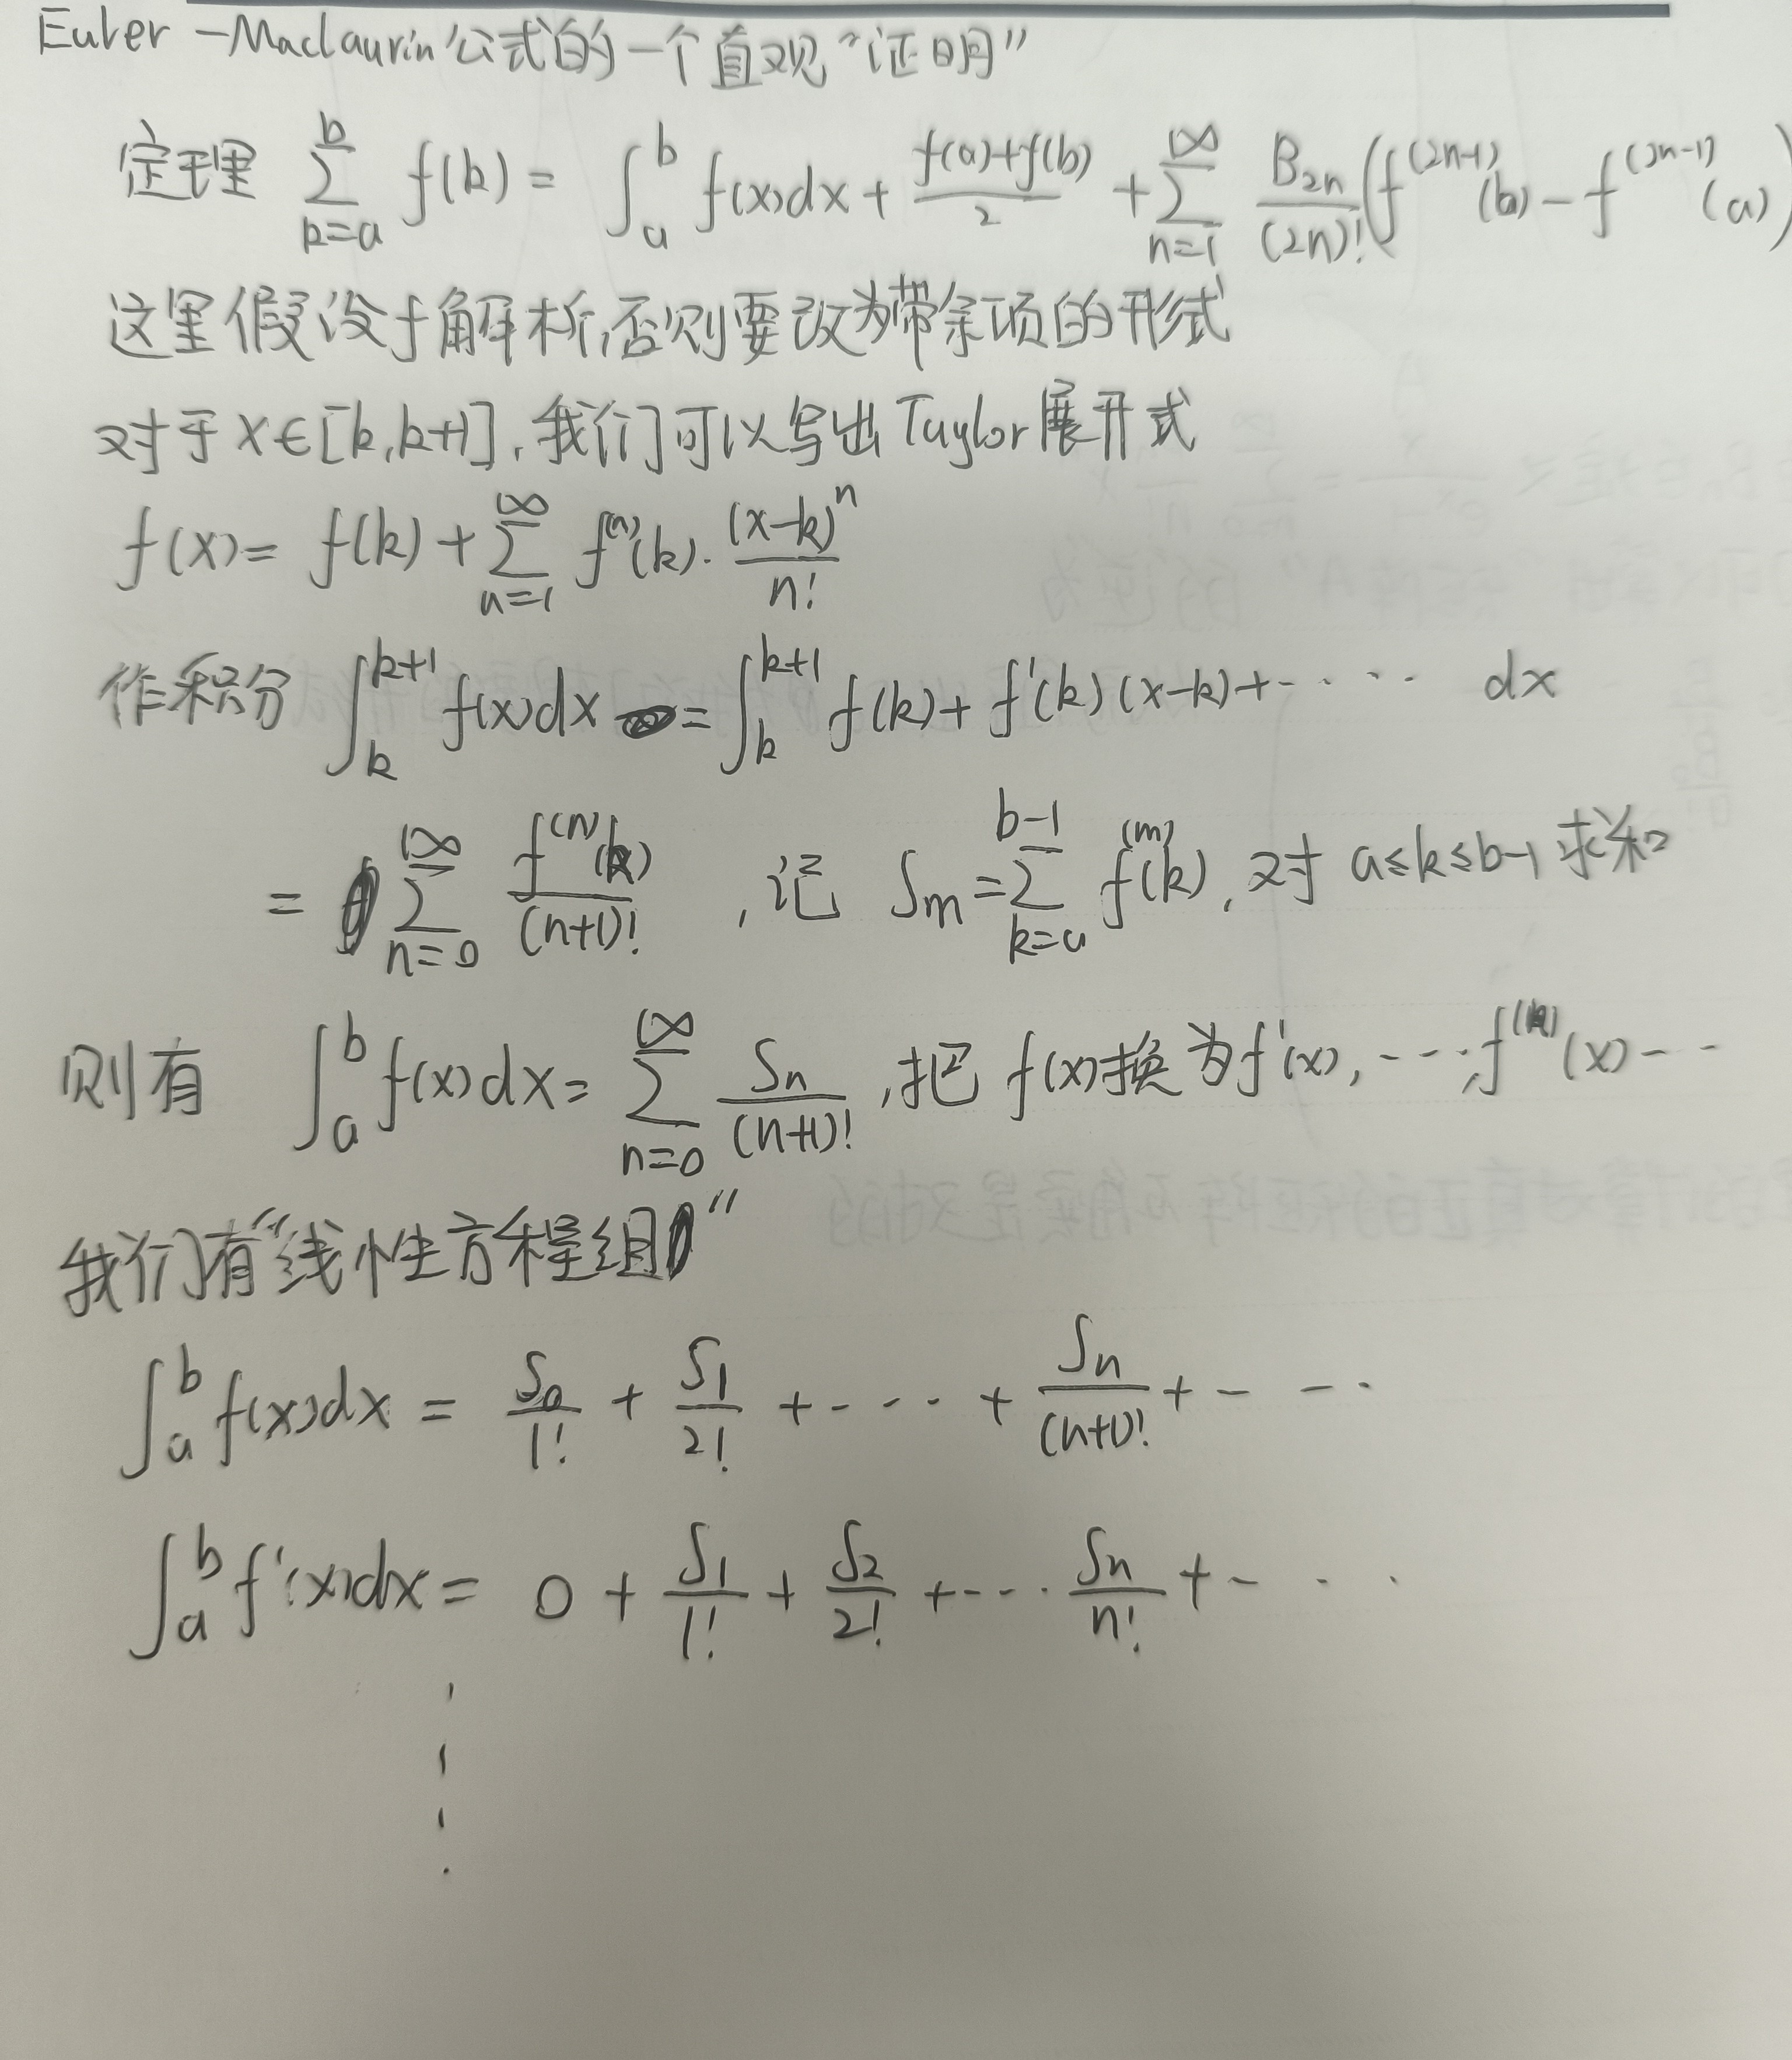 Euler-Maclaurin公式的一个直观“证明”
定理 $\sum_{k=a}^{b} f(k) = \int_a^b f(x)dx + \frac{f(a)+f(b)}{2} + \sum_{n=1}^{\infty} \frac{B_{2n}}{(2n)!}(f^{(2n-1)}(b) - f^{(2n-1)}(a))$
这里假设f解析,否则要改为带余项的形式
对于x∈[k,k+1],我们可以写出Taylor展开式
$f(x) = f(k) + \sum_{n=1}^{\infty} f^{(n)}(k) \cdot \frac{(x-k)^n}{n!}$
作积分 $\int_k^{k+1} f(x)dx = \int_k^{k+1} f(k) + f'(k)(x-k) + \cdots dx$
$= \sum_{n=0}^{\infty} \frac{f^{(n)}(k)}{(n+1)!}$ ,记 $S_m = \sum_{k=a}^{b-1} f^{(m)}(k)$,对 a≤k≤b-1 求和
则有 $\int_a^b f(x)dx = \sum_{n=0}^{\infty} \frac{S_n}{(n+1)!}$ ,把 f(x)换为f'(x), $\cdots$, $f^{(n)}(x) \cdots$
我们有“线性方程组”
$\int_a^b f(x)dx = \frac{S_0}{1!} + \frac{S_1}{2!} + \cdots + \frac{S_n}{(n+1)!} + \cdots$
$\int_a^b f'(x)dx = 0 + \frac{S_1}{1!} + \frac{S_2}{2!} + \cdots \frac{S_n}{n!} + \cdots$
⋮